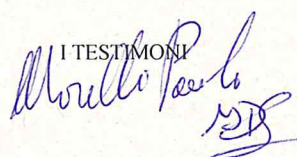 I TESTIMONI
Morello Paolo